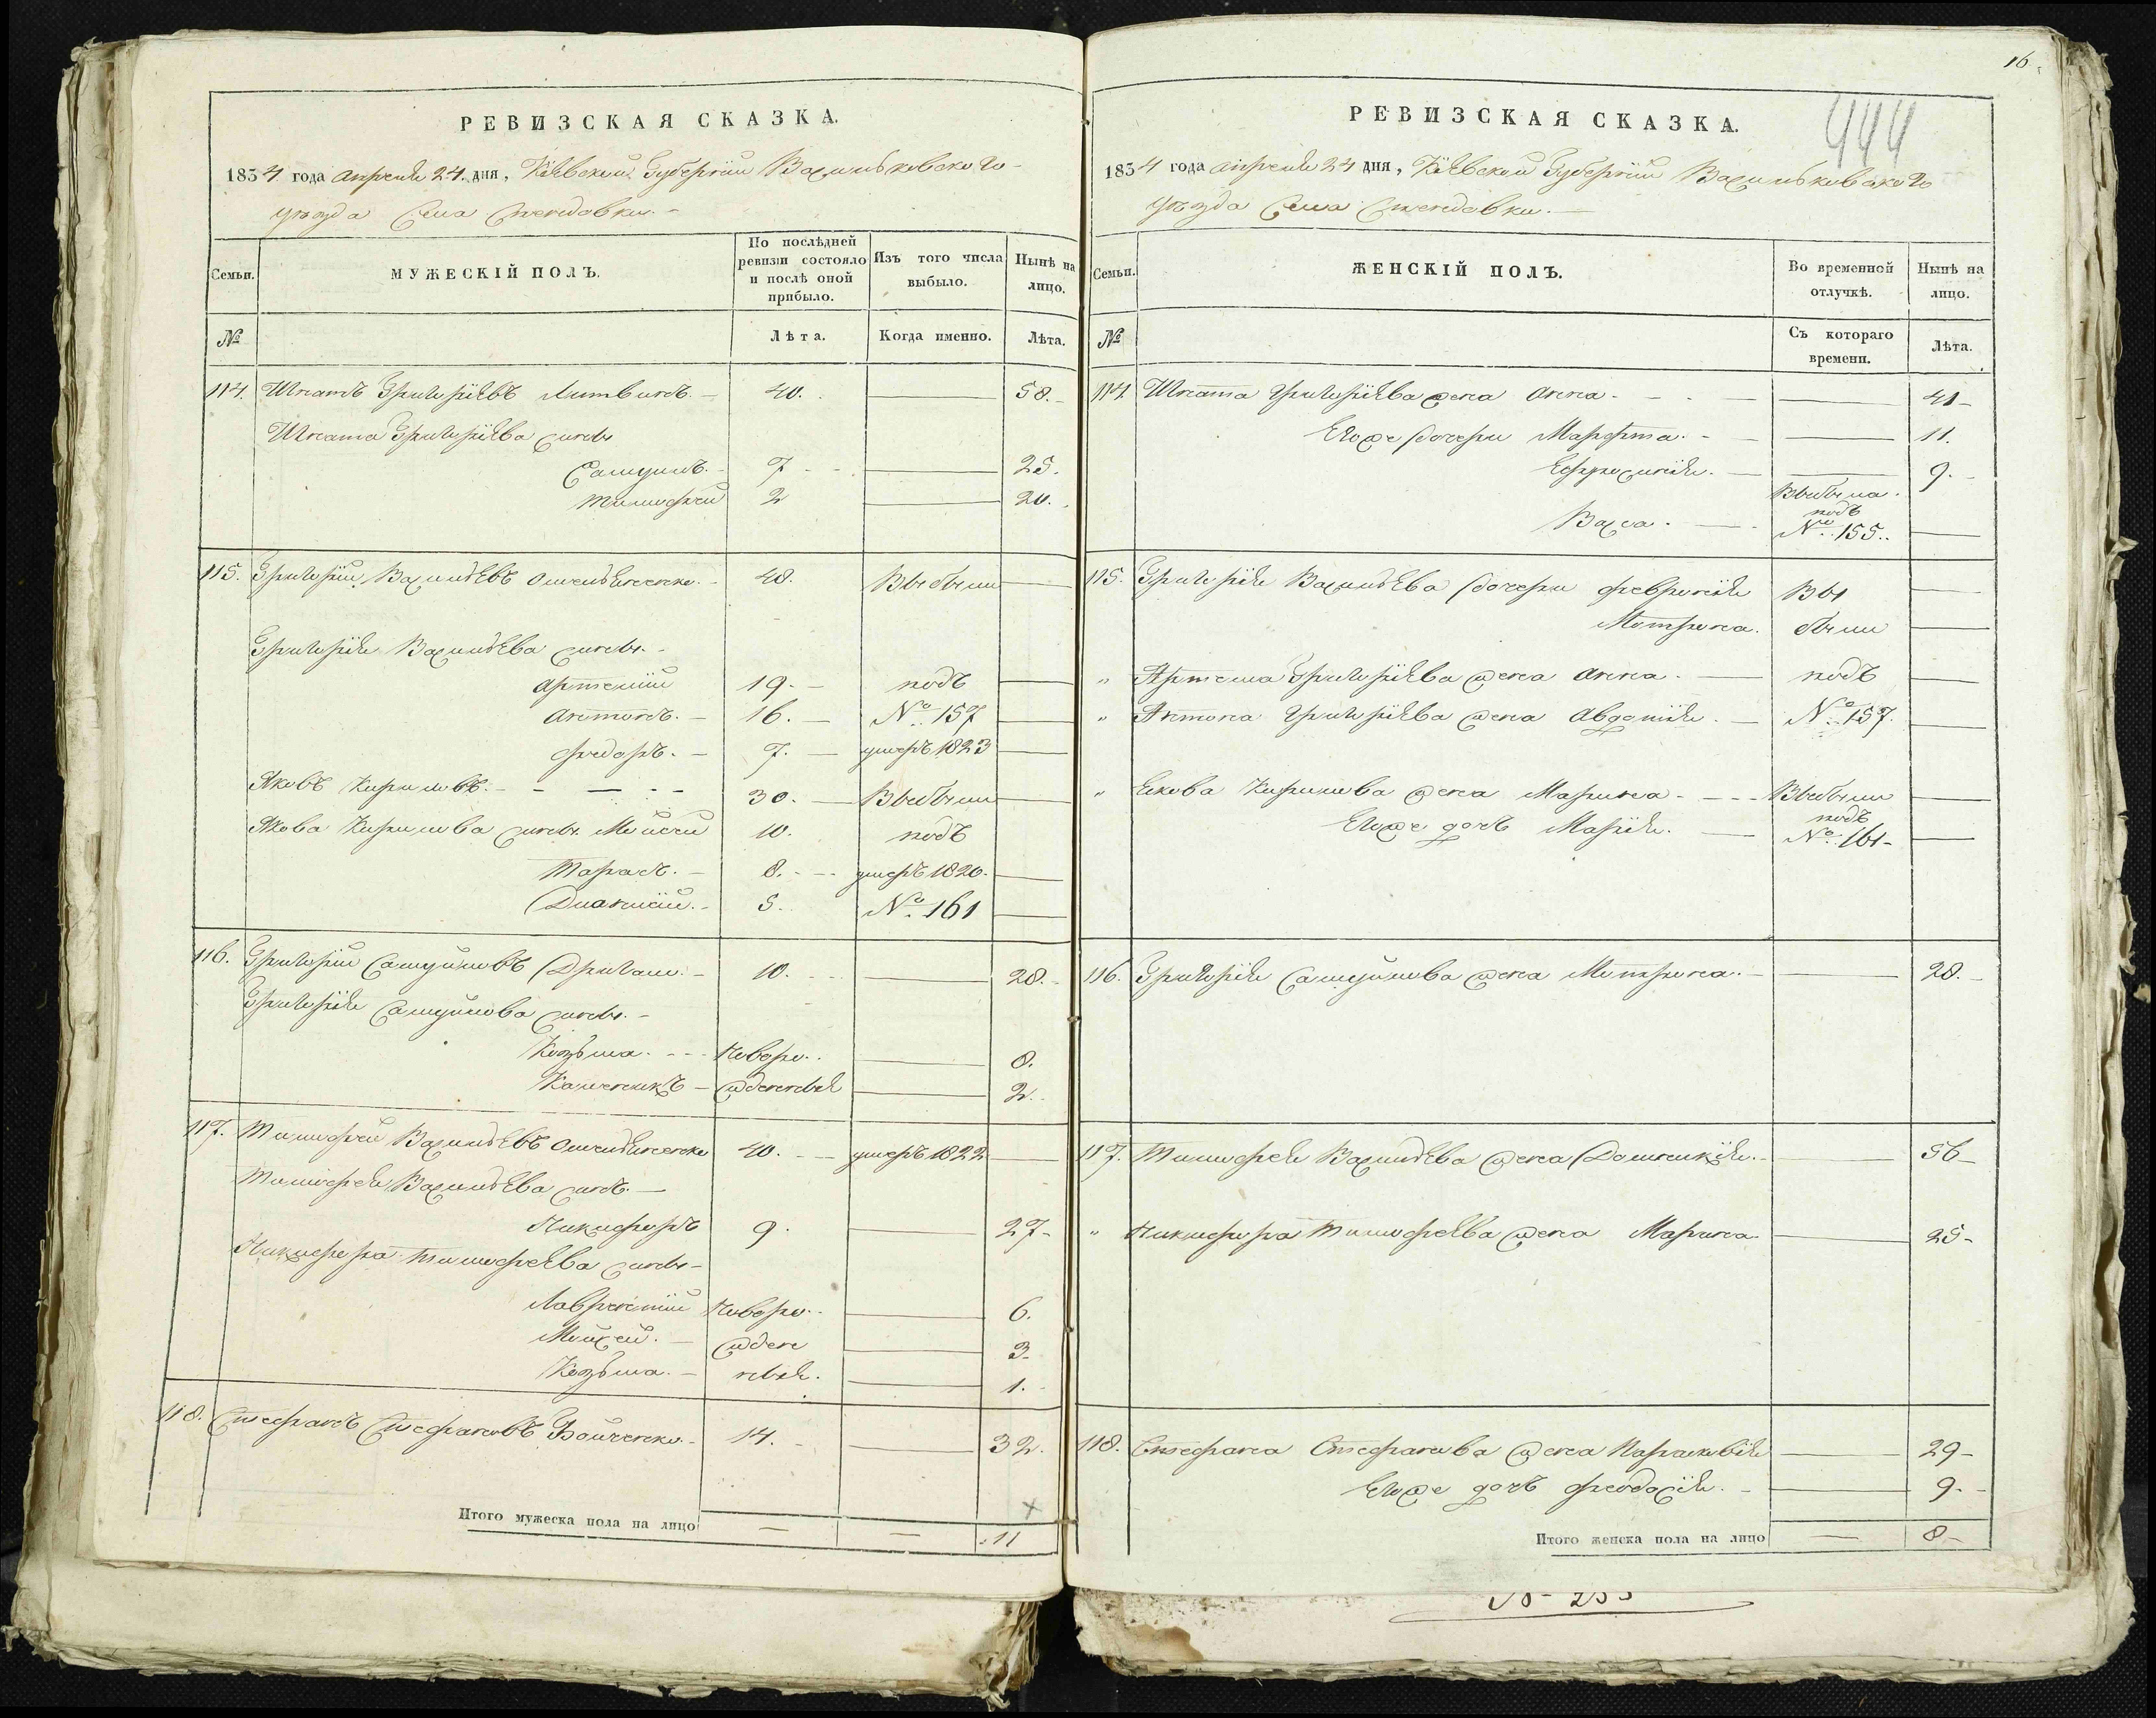 РЕВИЗСКАЯ СКАЗКА.
1834 года апреля 24. дня, Кіевской Губерніи Васильковского
уезда Села
Семьи.
МУЖЕСКІЙ ПОЛЪ.
По послѣдней ревизіи состояло и послѣ оной прибыло.
Изъ того числа выбыло.
Нынѣ на лицо.
№
Лѣта.
Когда именно.
Лѣта.
114. Игнатъ Григоріевъ Литвинъ. 40. 58.
Игната Григоріева сыны
Самуилъ. 7 25.
Тимофей 2 20.
115. Григорій Васильевъ 48. Выбыли
Григорія Васильева сыны.
Артемій 19. подъ
Антонъ. 16. № 157
Федоръ. 7. умеръ 1823
Яковъ Кириловъ. 30. Выбыли
Якова Кирилова сыны Мойсей 10. подъ
Тарасъ. 8. умеръ 1820.
Діонисій. 5. № 161
116. Григорій Самуиловъ 10. 28.
Григорія Самуилова сыны.
Козьма. Новоро. 8.
жденныя 2.
117. Тимофей Васильевъ 40. умеръ 1822
Тимофея Васильева сынъ.
Никифоръ 9. 27
Никифора Тимофеева сыны
Лаврентій Новоро. 6.
Мойсей. жден 3
Козьма. ныя. 1.
118. Стефанъ Стефановъ Бойченко. 14. 32.
Итого мужеска пола на лицо 11
16
444
РЕВИЗСКАЯ СКАЗКА.
1834 года апреля 24 дня, Кіевской Губерніи Васильковского
уезда Села
Семьи.
ЖЕНСКІЙ ПОЛЪ.
Во временной отлучкѣ.
Нынѣ на лицо.
№
Съ котораго времени.
Лѣта.
114. Игната Григоріева жена Анна. 41
Егоже дочери Марфа. 11.
Ефросинія. 9.
Васса. Выбыла подъ № 155.
115. Григорія Васильева дочери Февронія Вы
Мотрона. были
" Артема Григоріева жена Анна. подъ
" Антона Григоріева жена Авдотія. № 157.
" Якова Кирилова жена Марина Выбыли
Егоже дочь Марія. подъ № 161
116. Григорія Самуилова жена Мотрона. 28.
117. Тимофея Васильева жена Домникія. 56
" Никифора Тимофеева жена Марина 25
118. Стефана Стефанова жена Параскевія 29
Егоже дочь Феодосія. 9.
Итого женска пола на лицо 8